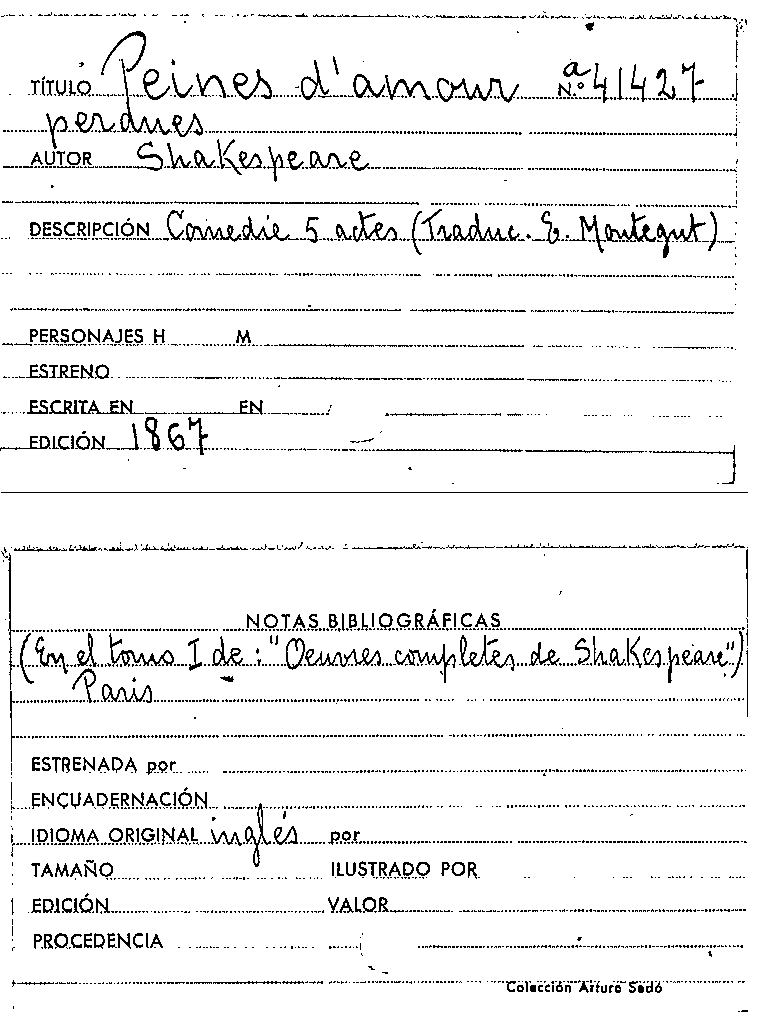 TÍTULO Peines d'amour N.º a 41427
perdues
AUTOR Shakespeare
DESCRIPCIÓN Comedie 5 actes (Traduc. E. Montegut)
PERSONAJES H M
ESTRENO
ESCRITA EN EN
EDICIÓN 1867
NOTAS BIBLIOGRÁFICAS
(En el tomo I de: "Oeuvres completes de Shakespeare")
Paris
ESTRENADA por
ENCUADERNACIÓN
IDIOMA ORIGINAL inglés por
TAMAÑO ILUSTRADO POR
EDICIÓN VALOR
PROCEDENCIA
Colección Arturo Sedó